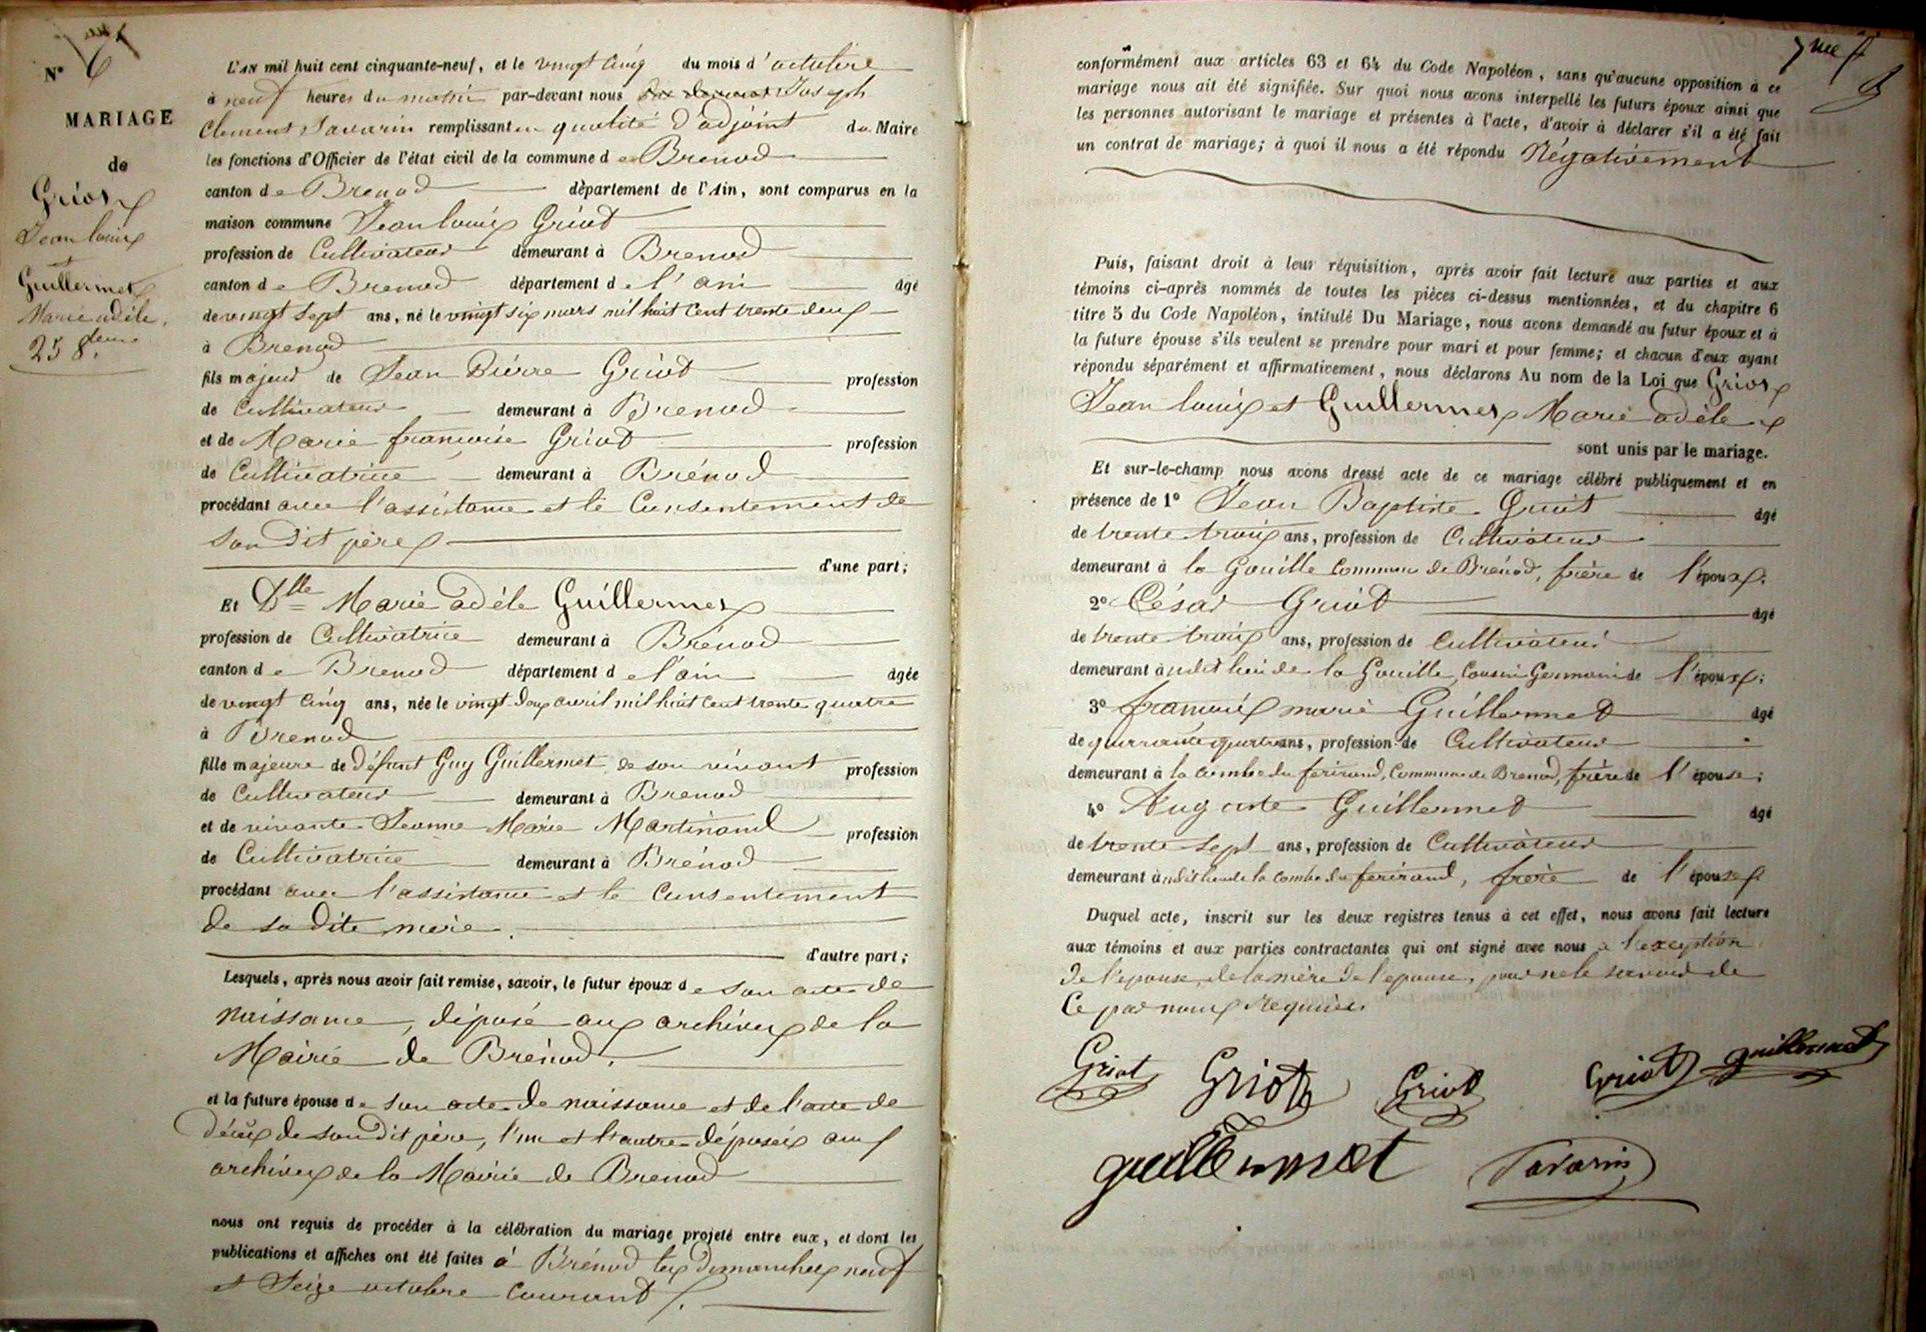 N° 6
MARIAGE
de
Griot
Jean Louis
et
Guillermet
Marie adèle
25 8bre
L'AN mil huit cent cinquante-neuf, et le vingt cinq du mois d'octobre
à neuf heures du matin par-devant nous Joseph
Clement Savarin remplissant en qualité d'adjoint du Maire
les fonctions d'Officier de l'état civil de la commune de Brenod
canton de Brenod département de l'Ain, sont comparus en la
maison commune Jean louis Griot
profession de Cultivateur demeurant à Brenod
canton de Brenod département de l'ain âgé
de vingt sept ans, né le vingt six mars mil huit cent trente deux
à Brenod
fils majeur de Jean Pierre Griot profession
de Cultivateur demeurant à Brenod
et de Marie françoise Griot profession
de Cultivatrice demeurant à Brénod
procédant avec l'assistance et le Consentement de
son dit père
d'une part;
Et Dlle Marie adèle Guillermet
profession de Cultivatrice demeurant à Brénod
canton de Brenod département de l'ain âgée
de vingt cinq ans, née le vingt deux avril mil huit cent trente quatre
à Brenod
fille majeure de défunt Guy Guillermet de son vivant profession
de Cultivateur demeurant à Brenod
et de vivante Jeanne Marie Martinand profession
de Cultivatrice demeurant à Brénod
procédant avec l'assistance et le Consentement
de sa dite mère.
d'autre part;
Lesquels, après nous avoir fait remise, savoir, le futur époux de son acte de
naissance, déposé aux archives de la
Mairie de Brénod.
et la future épouse de son acte de naissance et de l'acte de
décès de son dit père, l'un et l'autre déposés aux
archives de la Mairie de Brenod
nous ont requis de procéder à la célébration du mariage projeté entre eux, et dont les
publications et affiches ont été faites à Brénod les dimanches neuf
et Seize octobre Courant.
7me
conformément aux articles 63 et 64 du Code Napoléon, sans qu'aucune opposition à ce
mariage nous ait été signifiée. Sur quoi nous avons interpellé les futurs époux ainsi que
les personnes autorisant le mariage et présentes à l'acte, d'avoir à déclarer s'il a été fait
un contrat de mariage; à quoi il nous a été répondu Négativement
Puis, faisant droit à leur réquisition, après avoir fait lecture aux parties et aux
témoins ci-après nommés de toutes les pièces ci-dessus mentionnées, et du chapitre 6
titre 5 du Code Napoléon, intitulé Du Mariage, nous avons demandé au futur époux et à
la future épouse s'ils veulent se prendre pour mari et pour femme; et chacun d'eux ayant
répondu séparément et affirmativement, nous déclarons Au nom de la Loi que Griot
Jean louis et Guillermet Marie adèle
sont unis par le mariage.
Et sur-le-champ nous avons dressé acte de ce mariage célébré publiquement et en
présence de 1° Jean Baptiste Griot âgé
de trente trois ans, profession de Cultivateur
demeurant à la Gouille Commune de Brénod, frère de l'époux;
2° César Griot âgé
de trente trois ans, profession de Cultivateur
demeurant à udit lieu de la Gouille, Cousin Germain de l'époux;
3° françois marie Guillermet âgé
de quarante quatre ans, profession de Cultivateur
demeurant à la combe du ferirand, Commune de Brenod, frère de l'épouse;
4° Auguste Guillermet âgé
de trente sept ans, profession de Cultivateur
demeurant à udit lieu de la Combe du ferirand, frère de l'épouse
Duquel acte, inscrit sur les deux registres tenus à cet effet, nous avons fait lecture
aux témoins et aux parties contractantes qui ont signé avec nous à l'exception
de l'épouse, de la mère de l'épouse, pour ne le savoir de
Ce par nous Requises
Griot Griot Griot Griot guillermet
guillermet Savarin